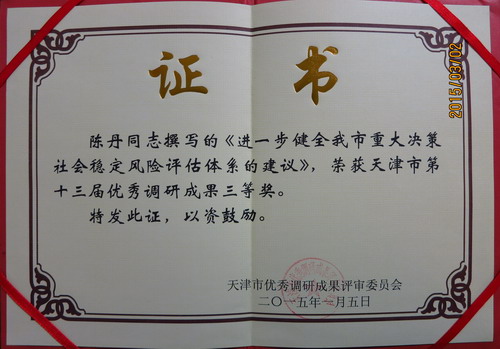 证书
2015/03/02
陈丹同志撰写的《进一步健全我市重大决策
社会稳定风险评估体系的建议》,荣获天津市第
十三届优秀调研成果三等奖。
特发此证,以资鼓励。
天津市优秀调研成果评审委员会
二〇一五年一月五日